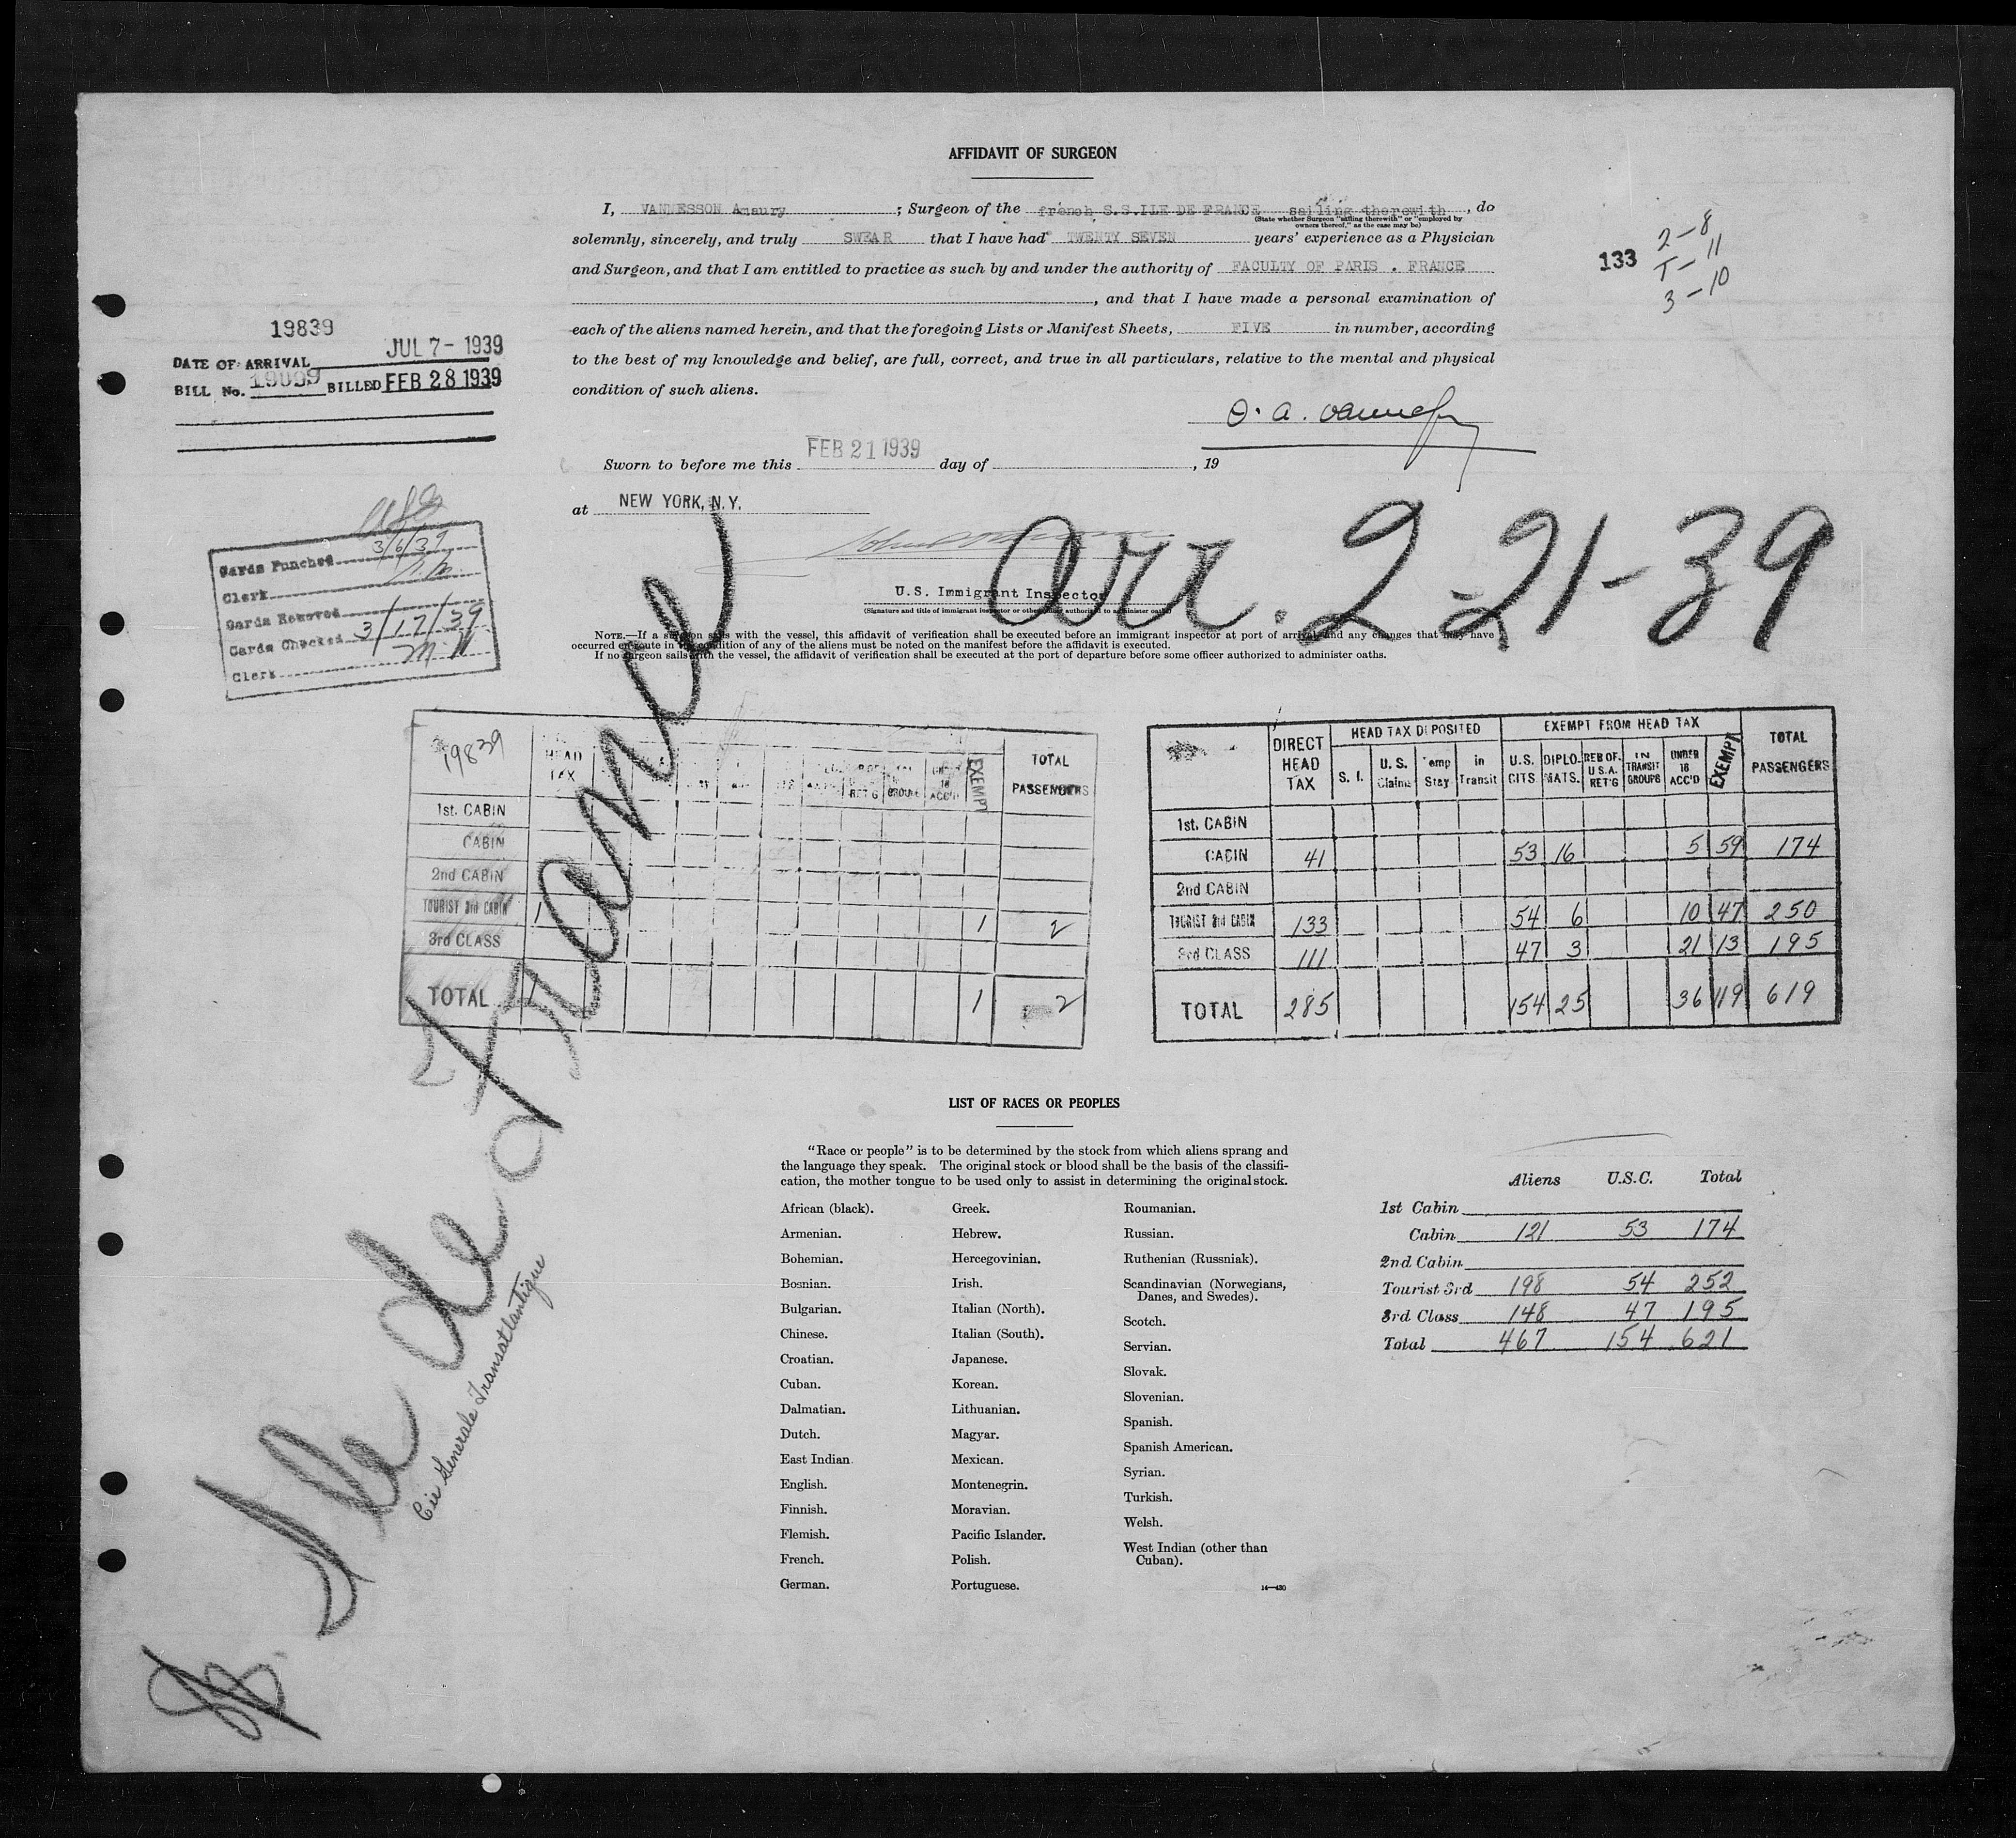 AFFIDAVIT OF SURGEON
I, VANNESSON Amaury ; Surgeon of the french S.S.ILE DE FRANCE sailing therewith , do
(State whether Surgeon "sailing therewith" or "employed by
owners thereof," as the case may be)
solemnly, sincerely, and truly SWEAR that I have had TWENTY SEVEN years' experience as a Physician
and Surgeon, and that I am entitled to practice as such by and under the authority of FACULTY OF PARIS . FRANCE
, and that I have made a personal examination of
each of the aliens named herein, and that the foregoing Lists or Manifest Sheets, FIVE in number, according
to the best of my knowledge and belief, are full, correct, and true in all particulars, relative to the mental and physical
condition of such aliens.
133
2-8
T-11
3-10
19839
DATE OF ARRIVAL JUL 7- 1939
BILL No. BILLED FEB 28 1939
Sworn to before me this FEB 21 1939 day of , 19
at NEW YORK, N.Y.
Arr. 2-21-39
U.S. Immigrant Inspector
(Signature and title of immigrant inspector or other authorized to administer oaths)
NOTE.—If a surgeon sails with the vessel, this affidavit of verification shall be executed before an immigrant inspector at port of arrival and any changes that may have
occurred en route in the condition of any of the aliens must be noted on the manifest before the affidavit is executed.
If no surgeon sails with the vessel, the affidavit of verification shall be executed at the port of departure before some officer authorized to administer oaths.
Cards Punched 3/6/39
Clerk
Cards Removed
Cards Checked 3/17/39
Clerk
19839 HEAD TAX RET'G GROUPS ACC'D EXEMPT TOTAL PASSENGERS
1st. CABIN
CABIN
2nd CABIN
TOURIST 3rd CABIN 1 1 2
3rd CLASS
TOTAL 1 1 2
DIRECT HEAD TAX HEAD TAX DEPOSITED EXEMPT FROM HEAD TAX TOTAL PASSENGERS
S. I. U. S. Claims Temp Stay in Transit U.S. CITS. DIPLO- MATS. REB OF. U.S.A. RET'G IN TRANSIT GROUPS UNDER 16 ACC'D EXEMPT
1st. CABIN
CABIN 41 53 16 5 59 174
2nd CABIN
TOURIST 3rd CABIN 133 54 6 10 47 250
3rd CLASS 111 47 3 21 13 195
TOTAL 285 154 25 36 119 619
Ile de France
Cie Generale Transatlantique
LIST OF RACES OR PEOPLES
"Race or people" is to be determined by the stock from which aliens sprang and
the language they speak. The original stock or blood shall be the basis of the classifi-
cation, the mother tongue to be used only to assist in determining the original stock.
African (black).
Armenian.
Bohemian.
Bosnian.
Bulgarian.
Chinese.
Croatian.
Cuban.
Dalmatian.
Dutch.
East Indian
English.
Finnish.
Flemish.
French.
German.
Greek.
Hebrew.
Hercegovinian.
Irish.
Italian (North).
Italian (South).
Japanese.
Korean.
Lithuanian.
Magyar.
Mexican.
Montenegrin.
Moravian.
Pacific Islander.
Polish.
Portuguese.
Roumanian.
Russian.
Ruthenian (Russniak).
Scandinavian (Norwegians,
Danes, and Swedes).
Scotch.
Servian.
Slovak.
Slovenian.
Spanish.
Spanish American.
Syrian.
Turkish.
Welsh.
West Indian (other than
Cuban).
14—430
Aliens U.S.C. Total
1st Cabin
Cabin 121 53 174
2nd Cabin
Tourist 3rd 198 54 252
3rd Class 148 47 195
Total 467 154 621